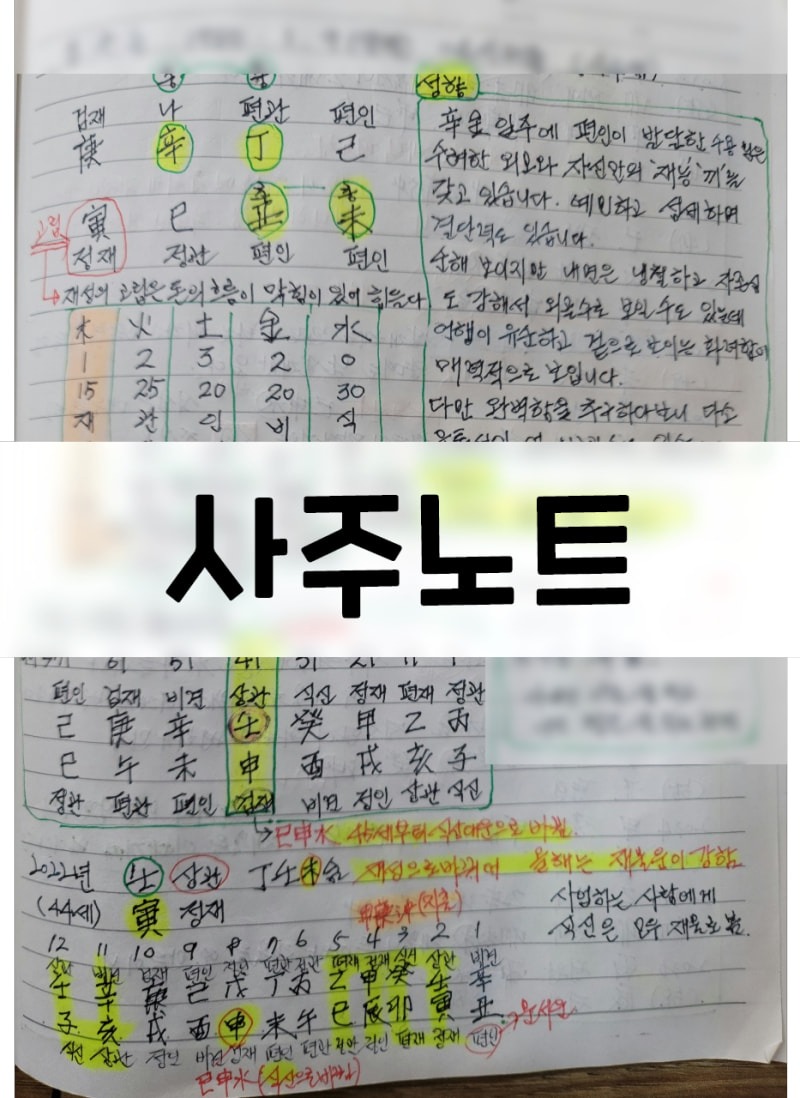 성향
겁재 나 편관 편인
庚 辛 丁 己
寅 巳 丑 未
고립
정재 정관 편인 편인
재성의 고립은 돈의 흐름이 막힘이 있어 힘들다
木 火 土 金 水
1 2 3 2 0
15 25 20 20 30
재 관 인 비 식
辛金 일주에 편인이 발달한
수려한 외모와 자신만의 '재능' '끼'를
갖고 있습니다. 예민하고 섬세하며
결단력도 있습니다.
순해 보이지만 내면은 냉철하고 자존심
도 강해서 외골수로 보일 수도 있는데
언행이 유순하고 겉으로 보이는 화려함이
매력적으로 보입니다.
다만 완벽함을 추구하다보니 다소
사주노트
61 51 41 31 21 11 1
편인 겁재 비견 상관 식신 정재 편재 정관
己 庚 辛 壬 癸 甲 乙 丙
巳 午 未 申 酉 戌 亥 子
정관 편관 편인 겁재 비견 정인 상관 식신
巳申水 46세부터 식신대운으로 바뀜
2022년 壬 상관 丁壬木合 재성으로 바뀌어 올해는 재물운이 강함
(44세) 寅 정재
사업하는 사람에게
식신은 모두 재물로 봄.
12 11 10 9 8 7 6 5 4 3 2 1
상관 비견 겁재 편인 정인 편관 정관 편재 정재 식신 상관 비견
壬 辛 庚 己 戊 丁 丙 乙 甲 癸 壬 辛
子 亥 戌 酉 申 未 午 巳 辰 卯 寅 丑
식신 상관 정인 비견 겁재 편인 편관 정관 정인 편재 정재 편인
巳申水 (식신으로 바뀜)